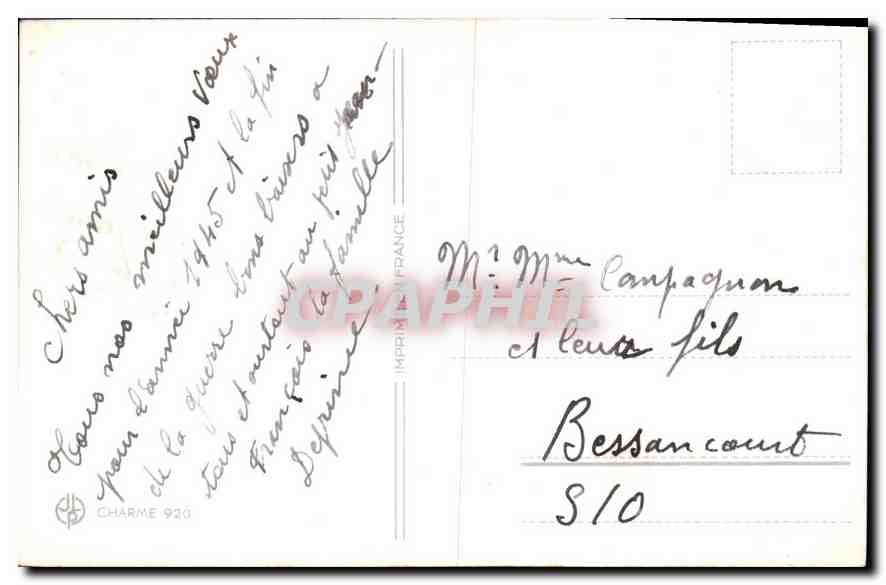 Chers amis
Tous nos meilleurs vœux
pour l'année 1945 et la fin
de la guerre bons baisers a
tous et surtout au petit Jean-
François la famille
IMPRIMÉ EN FRANCE
CHARME 920
Mr. Mme Compagnon
et leurs fils
Bessancourt
S/O
CPAPHIL